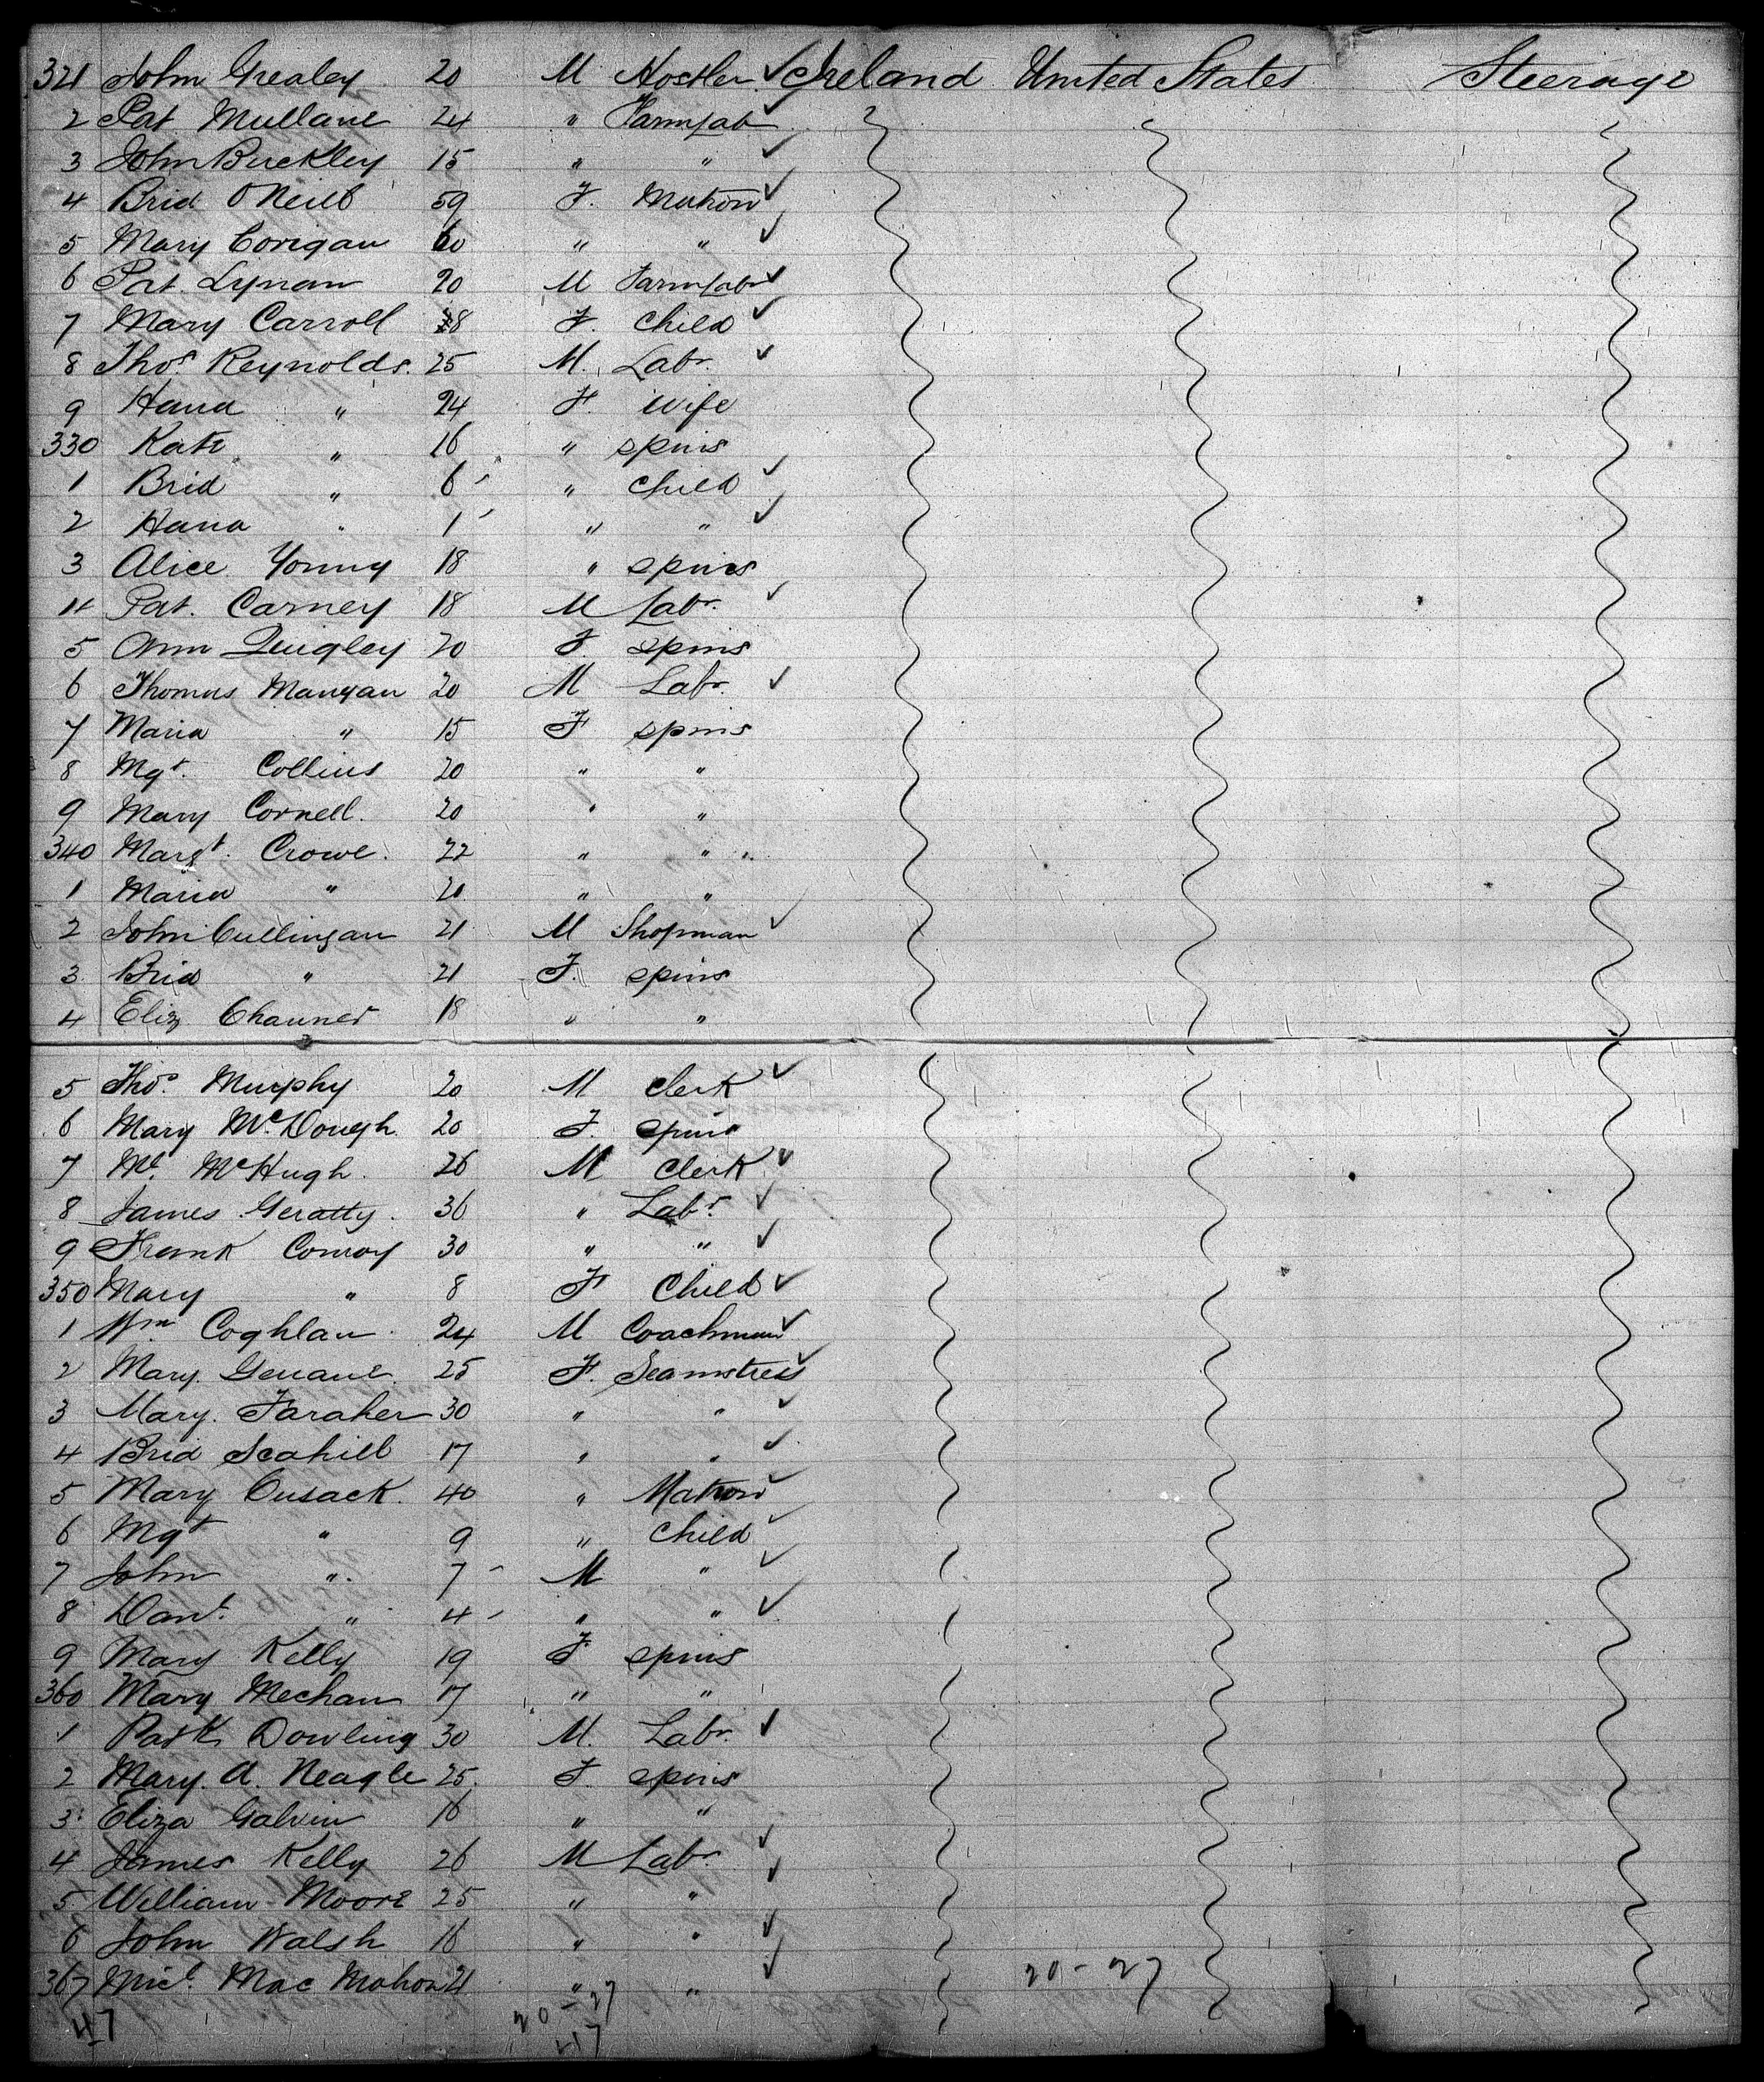 321 John Grealey 20 M Hostler Ireland United States Steerage
2 Pat Mullane 24 " Farm Lab
3 John Buckley 15 " "
4 Brid O'Neill 59 F. Matron
5 Mary Corigan 60 " "
6 Pat. Lynam 20 M Farm Labr
7 Mary Carroll 8 F. Child
8 Thos Reynolds. 25 M. Labr.
9 Hana " 24 F. Wife
330 Kate " 16 " spins
1 Brid " 6 " Child
2 Hana " 1 " "
3 Alice Young 18 " spins
4 Pat. Carney 18 M Labr.
5 Ann Quigley 20 F. spins
6 Thomas Mangan 20 M Labr.
7 Maria " 15 F spins
8 Mgt. Collins 20 " "
9 Mary Cornell. 20 " "
340 Margt. Crowe. 22 " "
1 Maria " 20 " "
2 John Cullingan 21 M Shopman
3 Brid " 21 F. spins
4 Eliz Chauner 18 " "
5 Thos. Murphy 20 M Clerk
6 Mary McDough 20 F. spins
7 Ml. McHugh. 26 M Clerk
8 James Geratty. 36 " Labr.
9 Frank Conroy 30 " "
350 Mary " 8 F Child
1 Wm Coghlan. 24 M Coachman
2 Mary. Genane. 25 F. Seamstress
3 Mary. Faraher 30 " "
4 Brid Scahill 17 " "
5 Mary Cusack. 40 " Matron
6 Mgt " 9 " Child
7 John " 7 M "
8 Danl. " 4 " "
9 Mary Kelly 19 F spins
360 Mary Mechan 17 " "
1 Patk Dowling 30 M. Labr.
2 Mary. A. Neagle 25. F. spins
3 Eliza Galvin 16 " "
4 James Kelly 26 M Labr.
5 William Moore 25 " "
6 John Walsh 16 " "
367 Micl. Mac Mahon 21 " " 20-27
47 20-27
47